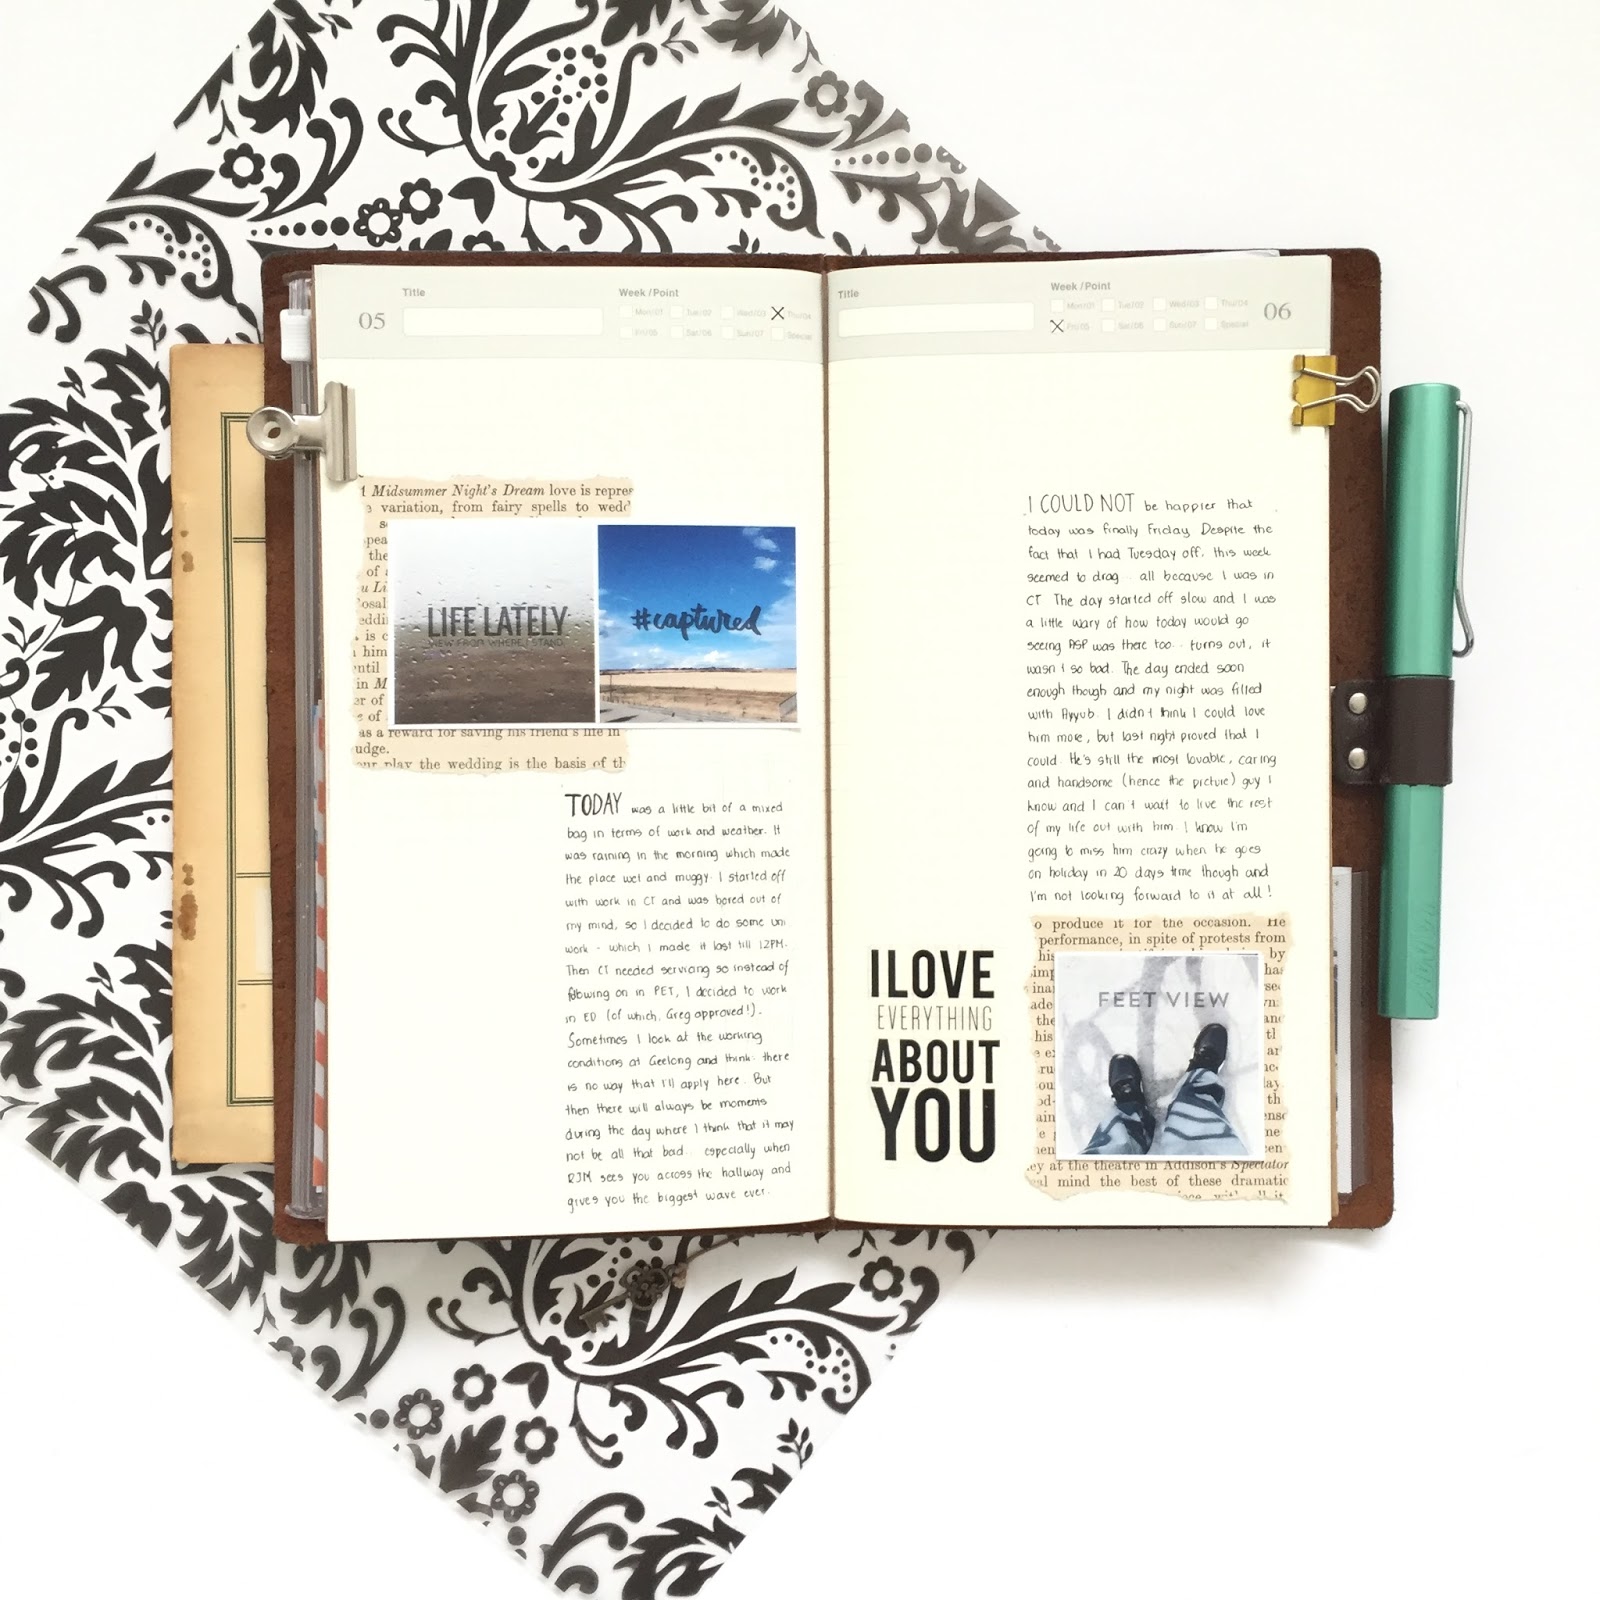 05
Title
Week/Point
Mon/01 Tue/02 Wed/03 Thu/04
Fri/05 Sat/06 Sun/07 Special
Midsummer Night's Dream love is repres
variation, from fairy spells to wedd
LIFE LATELY
VIEW FROM WHERE I STAND
#captured
as a reward for saving his friend's life in
udge.
our play the wedding is the basis of th
TODAY was a little bit of a mixed
bag in terms of work and weather. It
was raining in the morning which made
the place wet and muggy. I started off
with work in CT and was bored out of
my mind, so I decided to do some uni
work - which I made it last till 12PM.
Then CT needed servicing so instead of
following on in PET, I decided to work
in ED (of which, Greg approved!).
Sometimes I look at the working
conditions at Geelong and think: there
is no way that I'll apply here. But
then there will always be moments
during the day where I think that it may
not be all that bad.. especially when
RJM sees you across the hallway and
gives you the biggest wave ever.
Title
Week/Point
Mon/01 Tue/02 Wed/03 Thu/04
Fri/05 Sat/06 Sun/07 Special
06
I COULD NOT be happier that
today was finally Friday. Despite the
fact that I had Tuesday off, this week
seemed to drag... all because I was in
CT. The day started off slow and I was
a little wary of how today would go
seeing ASP was there too... turns out, it
wasn't so bad. The day ended soon
enough though and my night was filled
with Ayyub. I didn't think I could love
him more, but last night proved that I
could. He's still the most lovable, caring
and handsome (hence the picture) guy I
know and I can't wait to live the rest
of my life out with him. I know I'm
going to miss him crazy when he goes
on holiday in 20 days time though and
I'm not looking forward to it at all!
I LOVE
EVERYTHING
ABOUT
YOU
o produce it for the occasion. He
performance, in spite of protests from
FEET VIEW
ey at the theatre in Addison's Spectator
al mind the best of these dramatic